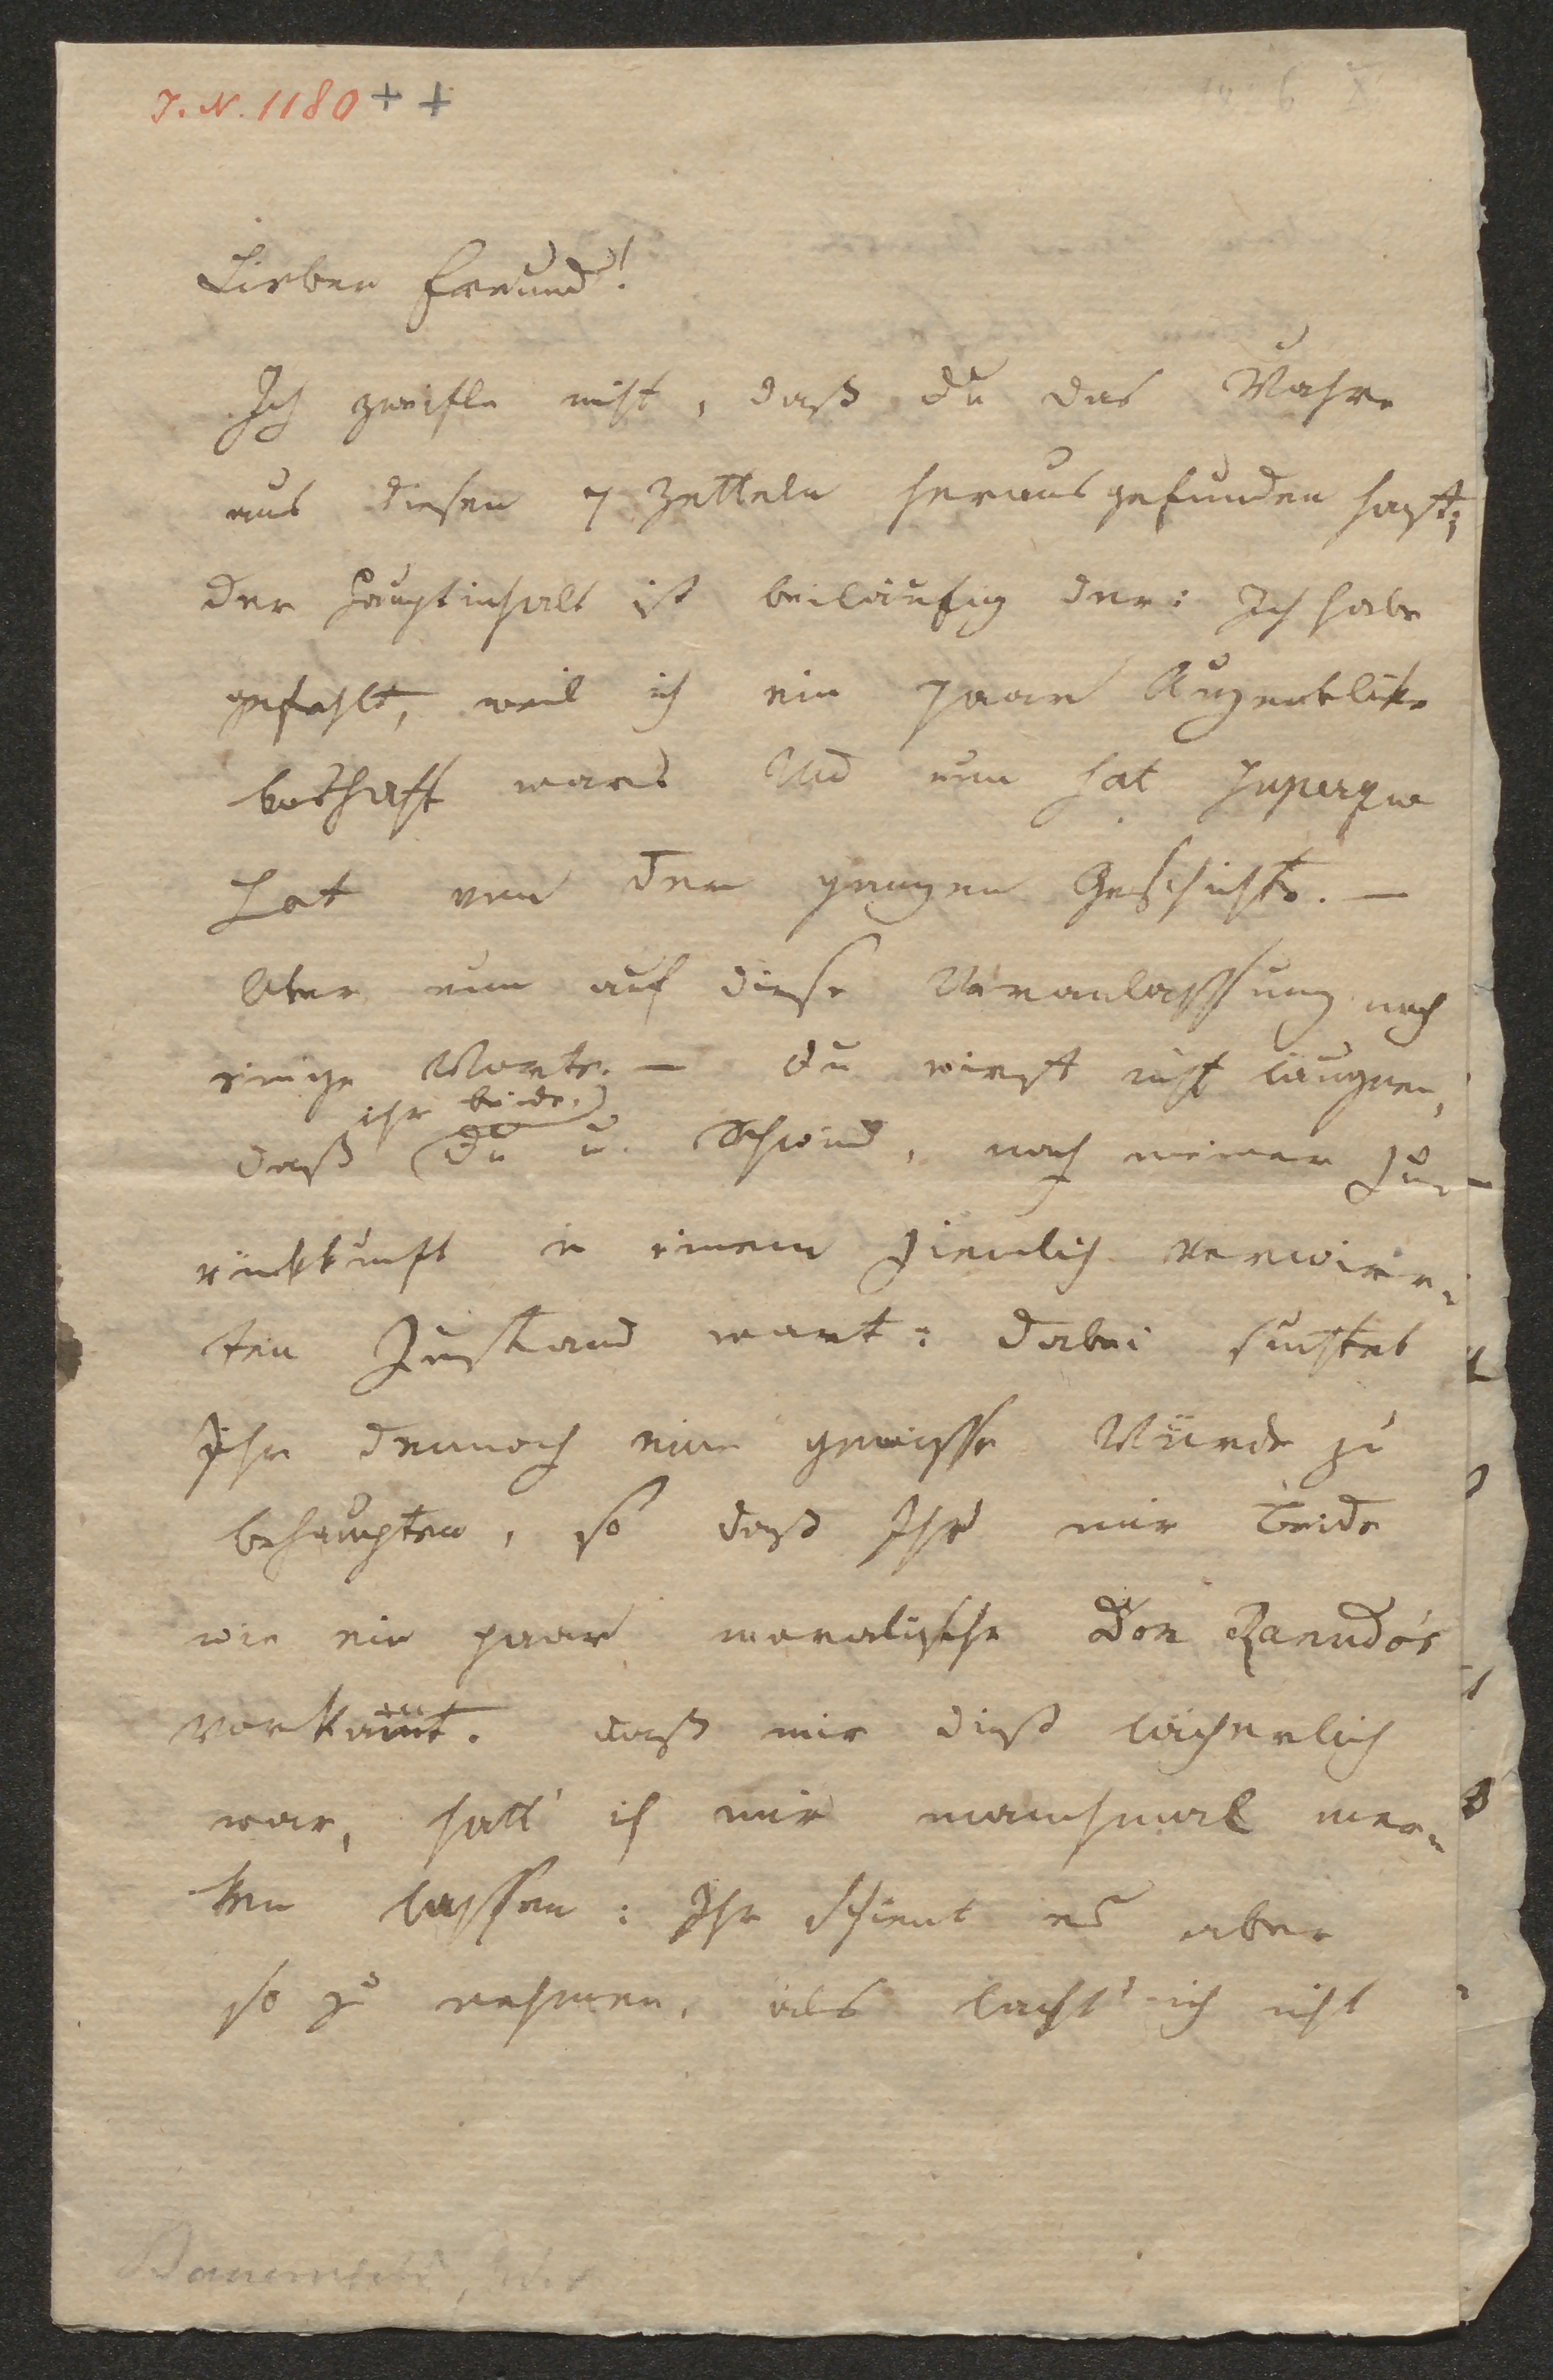 J. N. 1180 + +
Lieber Freund!
Ich zweifle nicht, daß du das Wahre
aus diesen 7 Zetteln herausgefunden hast;
der Hauptinhalt ist beiläufig der: Ich habe
gefehlt, weil ich ein paar Augenblicke
boshaft war. Und nun hat
hat von der ganzen Geschichte. —
Aber nun auf diese Veranlassung noch
einige Worte. — Du wirst nicht läugnen,
ihr beide
daß (du u. Schwind, nach meiner Zu-
rückkunft in einem ziemlich verwirr-
ten Zustand wart: dabei suchtet
Ihr dennoch eine gewisse Würde zu
behaupten, so daß Ihr mir beide
wie ein paar moralische Don Ranudo's
vorkamt. daß mir dieß lächerlich
war, hatt' ich mir manchmal mer-
ken lassen: Ihr schient es aber
so zu nehmen, als lacht' ich nicht
Bauernfeld,